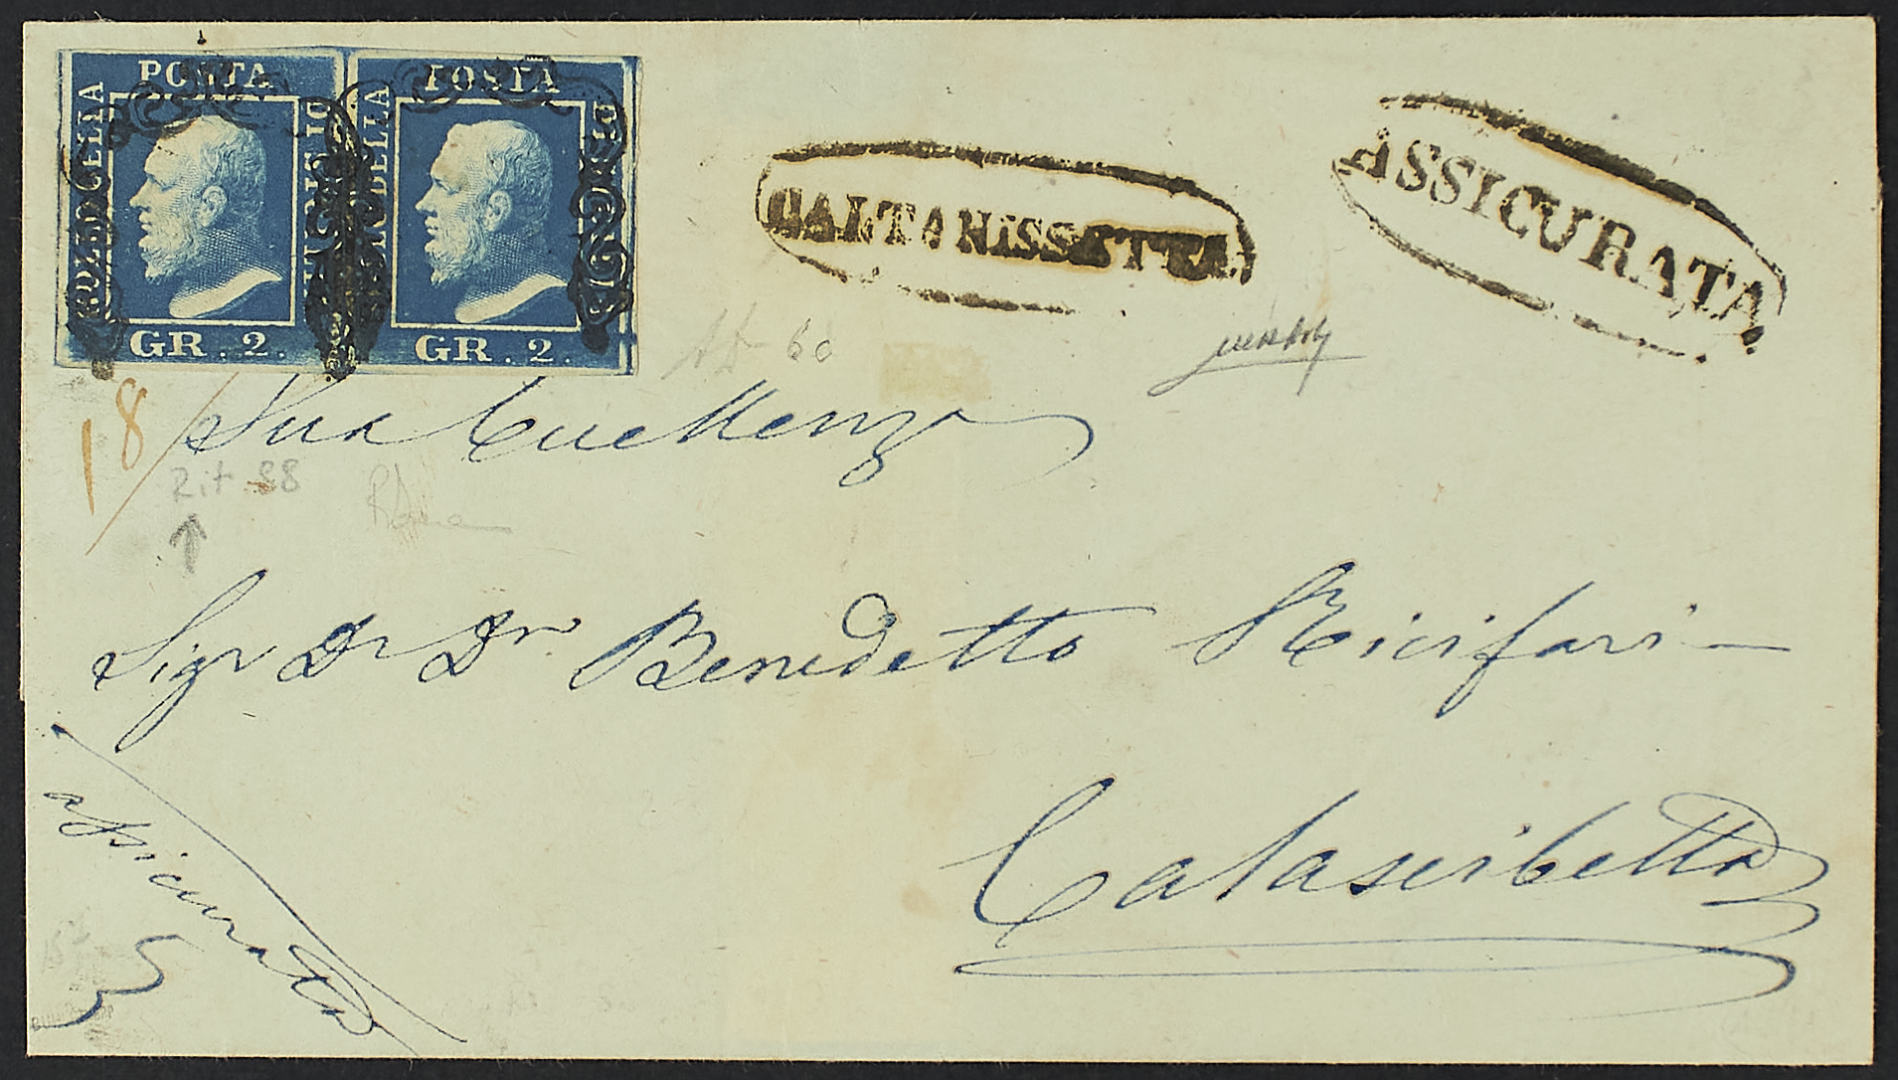 POSTA POSTA
BOLLO DELLA DI SICILIA BOLLO DELLA DI SICILIA
GR. 2. GR. 2.
CALTANISSETTA.
ASSICURATA.
18
Sua Eccellenza
Rit. 88
Sigr Dr Dn Benedetto Ricifari
Calascibetta
assicurata